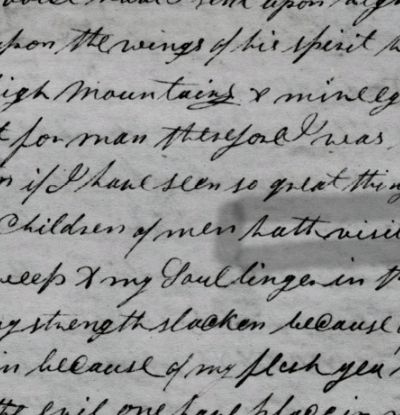 upon
upon the wings of his spirit
high mountains & mine ey
for man therefore I was
if I have seen so great thing
Children of men hath visit
weep & my Soul linger in th
my strength slacken because
in because of my flesh yea
the evil one have place in